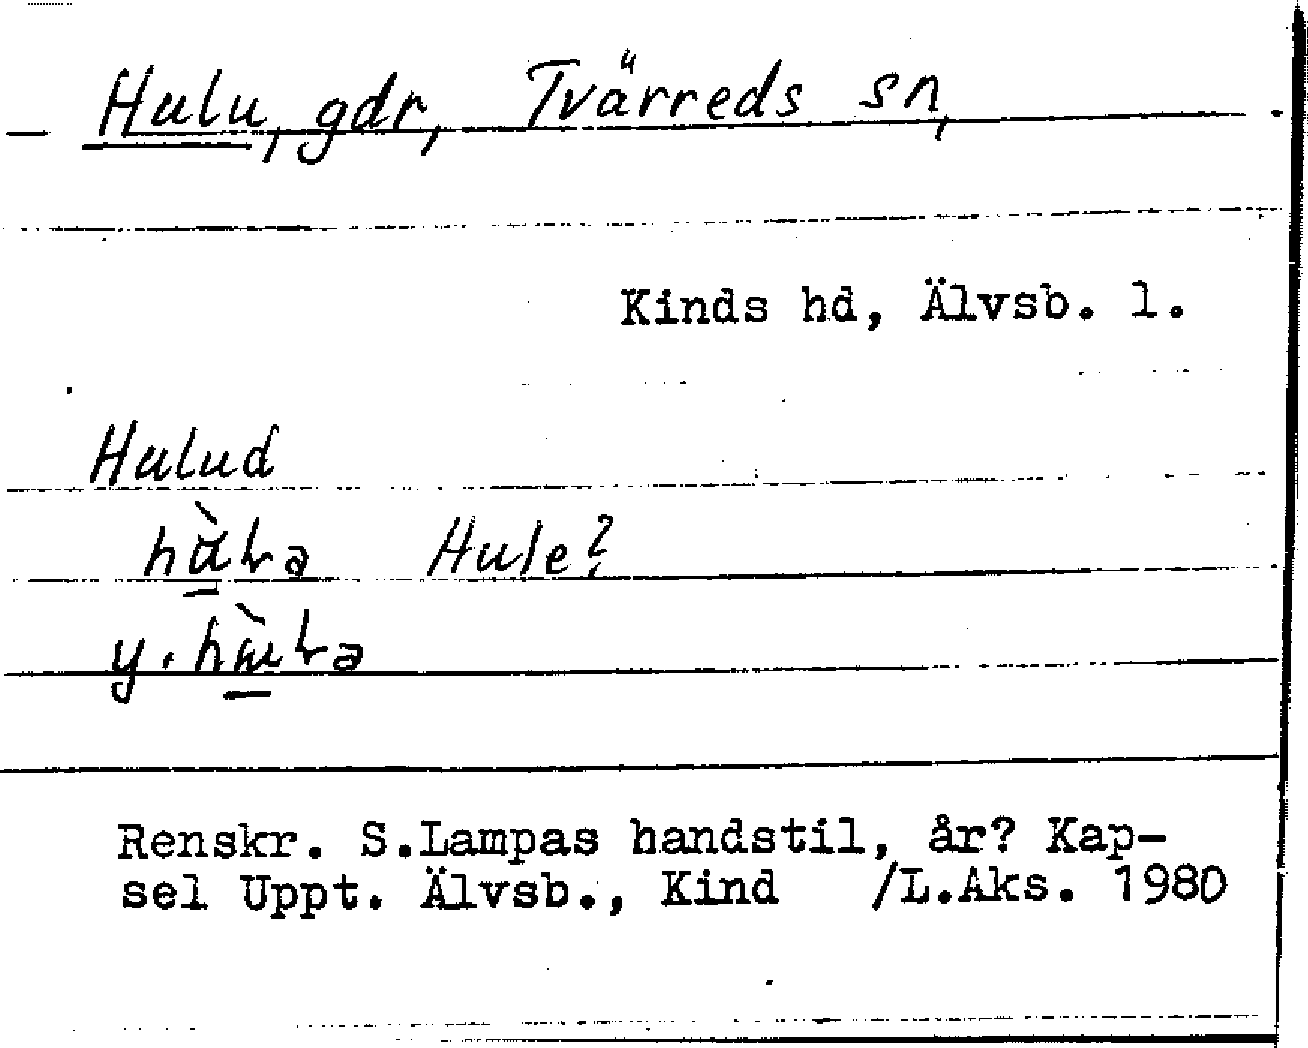 Hulu, gdr, Tvärreds sn,
Kinds hd, Älvsb. l.
Hulud
Hule?
y.
Renskr. S.Lampas handstil, år? Kap-
sel Uppt. Älvsb., Kind /L.Aks. 1980